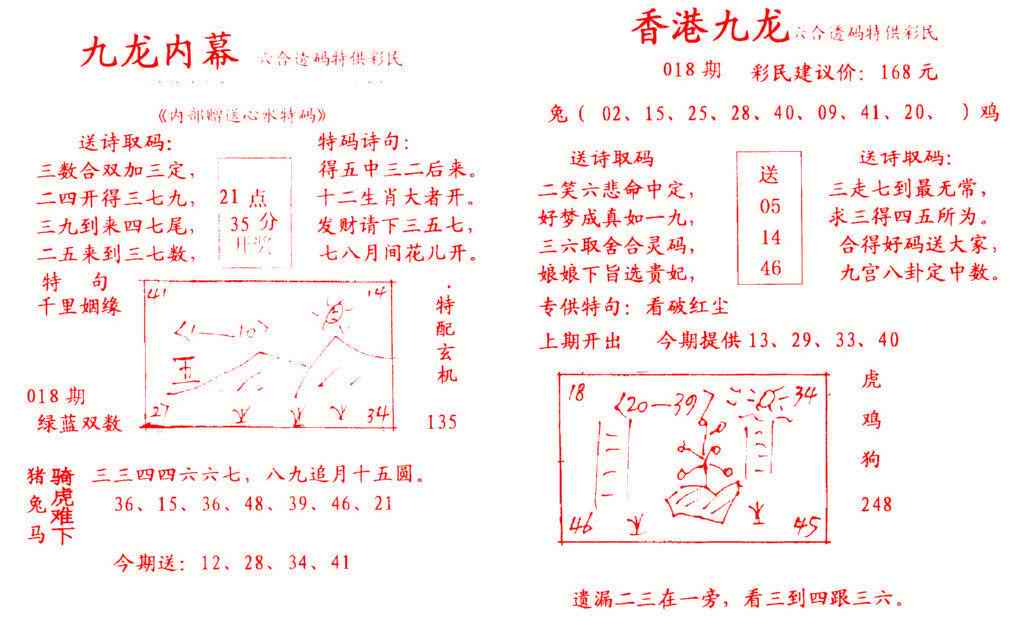 九龙内幕 六合透码特供彩民
《内部赠送心水特码》
送诗取码：
三数合双加三定，
二四开得三七九，
三九到来四七尾，
二五来到三七数，
21 点
35 分
开奖
特码诗句：
得五中三二后来。
十二生肖大者开。
发财请下三五七，
七八月间花儿开。
特 句
千里姻缘
41 14
<1—10>
五
27 34
特配玄机
135
018 期
绿蓝双数
猪兔马
骑虎难下
三三四四六六七，八九追月十五圆。
36、15、36、48、39、46、21
今期送：12、28、34、41
香港九龙 六合透码特供彩民
018 期 彩民建议价：168 元
兔（ 02、15、25、28、40、09、41、20、 ）鸡
送诗取码
二笑六悲命中定，
好梦成真如一九，
三六取舍合灵码，
娘娘下旨选贵妃，
送
05
14
46
送诗取码：
三走七到最无常，
求三得四五所为。
合得好码送大家，
九宫八卦定中数。
专供特句：看破红尘
上期开出 今期提供 13、29、33、40
18 <20—39> 34
46 45
虎
鸡
狗
248
遗漏二三在一旁，看三到四跟三六。